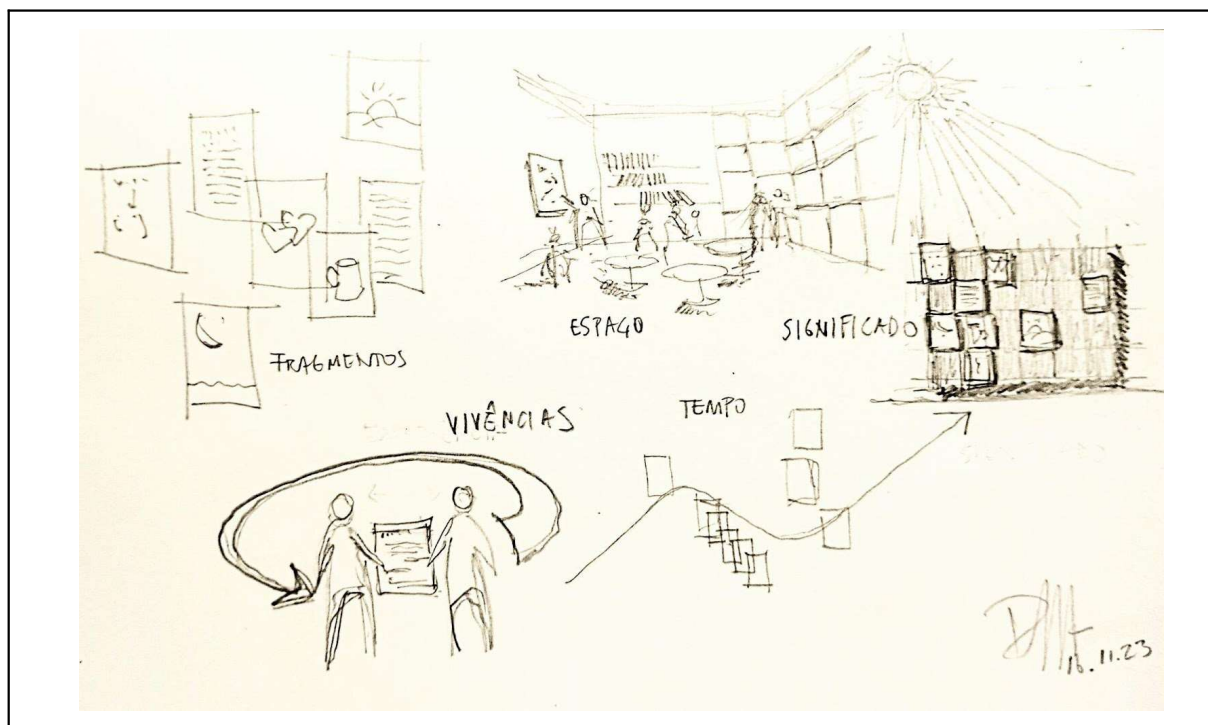 FRAGMENTOS
ESPAÇO
SIGNIFICADO
VIVÊNCIAS
TEMPO
16.11.23